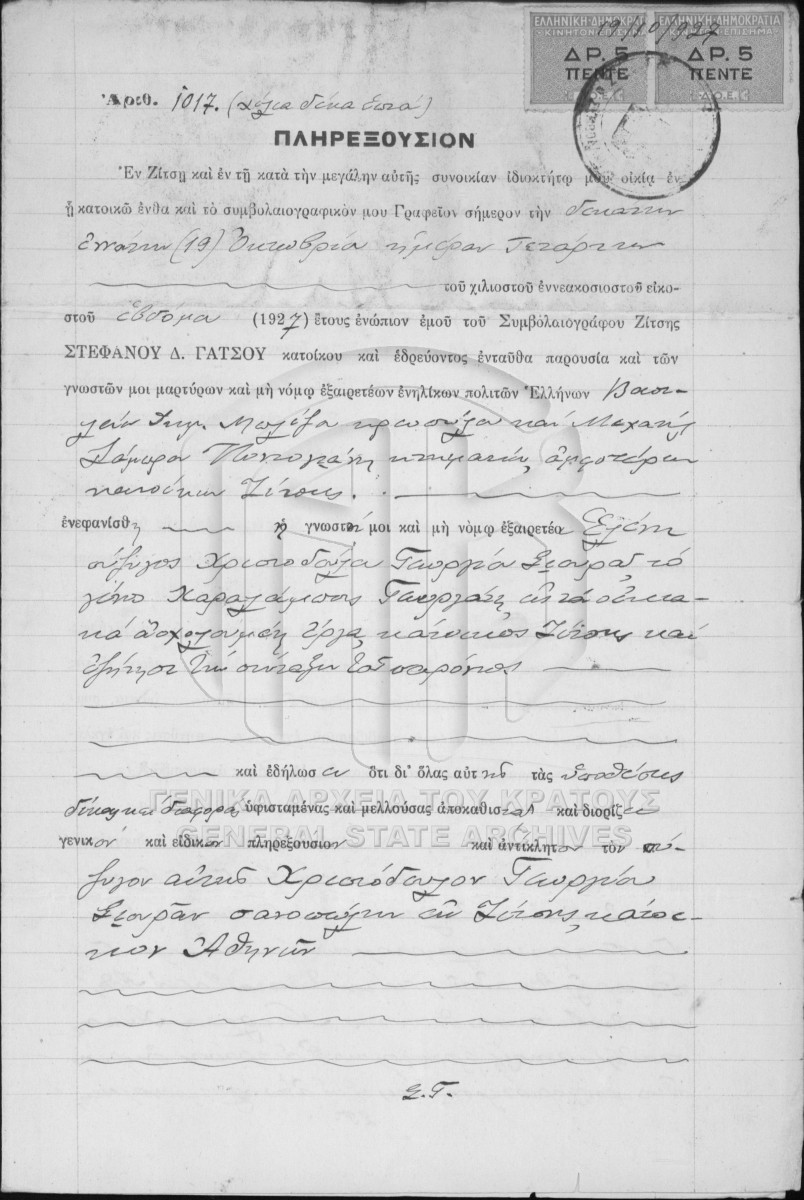 ΕΛΛΗΝΙΚΗ·ΔΗΜΟΚΡΑΤΙΑ ΕΛΛΗΝΙΚΗ·ΔΗΜΟΚΡΑΤΙΑ
ΚΙΝΗΤΟΝ·ΕΠΙΣΗΜΑ ΚΙΝΗΤΟΝ·ΕΠΙΣΗΜΑ
19/10/927
ΔΡ. 5 ΔΡ. 5
ΠΕΝΤΕ ΠΕΝΤΕ
Ἀριθ. 1017. (χίλια δέκα ἑπτά)
ΠΛΗΡΕΞΟΥΣΙΟΝ
Ἐν Ζίτσῃ καὶ ἐν τῇ κατὰ τὴν μεγάλην αὐτῆς συνοικίαν ἰδιοκτήτῳ μου οἰκίᾳ ἐν
ᾗ κατοικῶ ἔνθα καὶ τὸ συμβολαιογραφικόν μου Γραφεῖον σήμερον τὴν δεκάτην
ἐννάτην (19) Ὀκτωβρίου ἡμέραν Τετάρτην
τοῦ χιλιοστοῦ ἐννεακοσιοστοῦ εἰκο-
στοῦ ἑβδόμου (1927) ἔτους ἐνώπιον ἐμοῦ τοῦ Συμβολαιογράφου Ζίτσης
ΣΤΕΦΑΝΟΥ Δ. ΓΑΤΣΟΥ κατοίκου καὶ ἑδρεύοντος ἐνταῦθα παρουσίᾳ καὶ τῶν
γνωστῶν μοι μαρτύρων καὶ μὴ νόμῳ ἐξαιρετέων ἐνηλίκων πολιτῶν Ἑλλήνων Βασι-
λείου καὶ Μιχαὴλ
κτηματίου, ἀμφοτέρων
κατοίκων Ζίτσης.
ἐνεφανίσθη ἡ γνωστή μοι καὶ μὴ νόμῳ ἐξαιρετέα Ἑλένη
σύζυγος Χριστοδούλου Γεωργίου Σιουρᾶ, τὸ
γένος Χαραλάμπους εἰς τὰ οἰκια-
κὰ ἀσχολουμένη ἔργα, κάτοικος Ζίτσης καὶ
ἐζήτησε τὴν σύνταξιν τοῦ παρόντος
καὶ ἐδήλωσεν ὅτι δι' ὅλας αὐτῆς τὰς ὑποθέσεις
δίκας καὶ διαφορὰς ὑφισταμένας καὶ μελλούσας ἀποκαθιστᾷ καὶ διορίζει
γενικὸν καὶ εἰδικὸν πληρεξούσιον καὶ ἀντίκλητον τὸν σύ-
ζυγον αὐτῆς Χριστόδουλον Γεωργίου
Σιουρᾶν ἐκ Ζίτσης, κάτοι-
κον Ἀθηνῶν
ΓΕΝΙΚΑ ΑΡΧΕΙΑ ΤΟΥ ΚΡΑΤΟΥΣ
GENERAL STATE ARCHIVES
Σ.Γ.